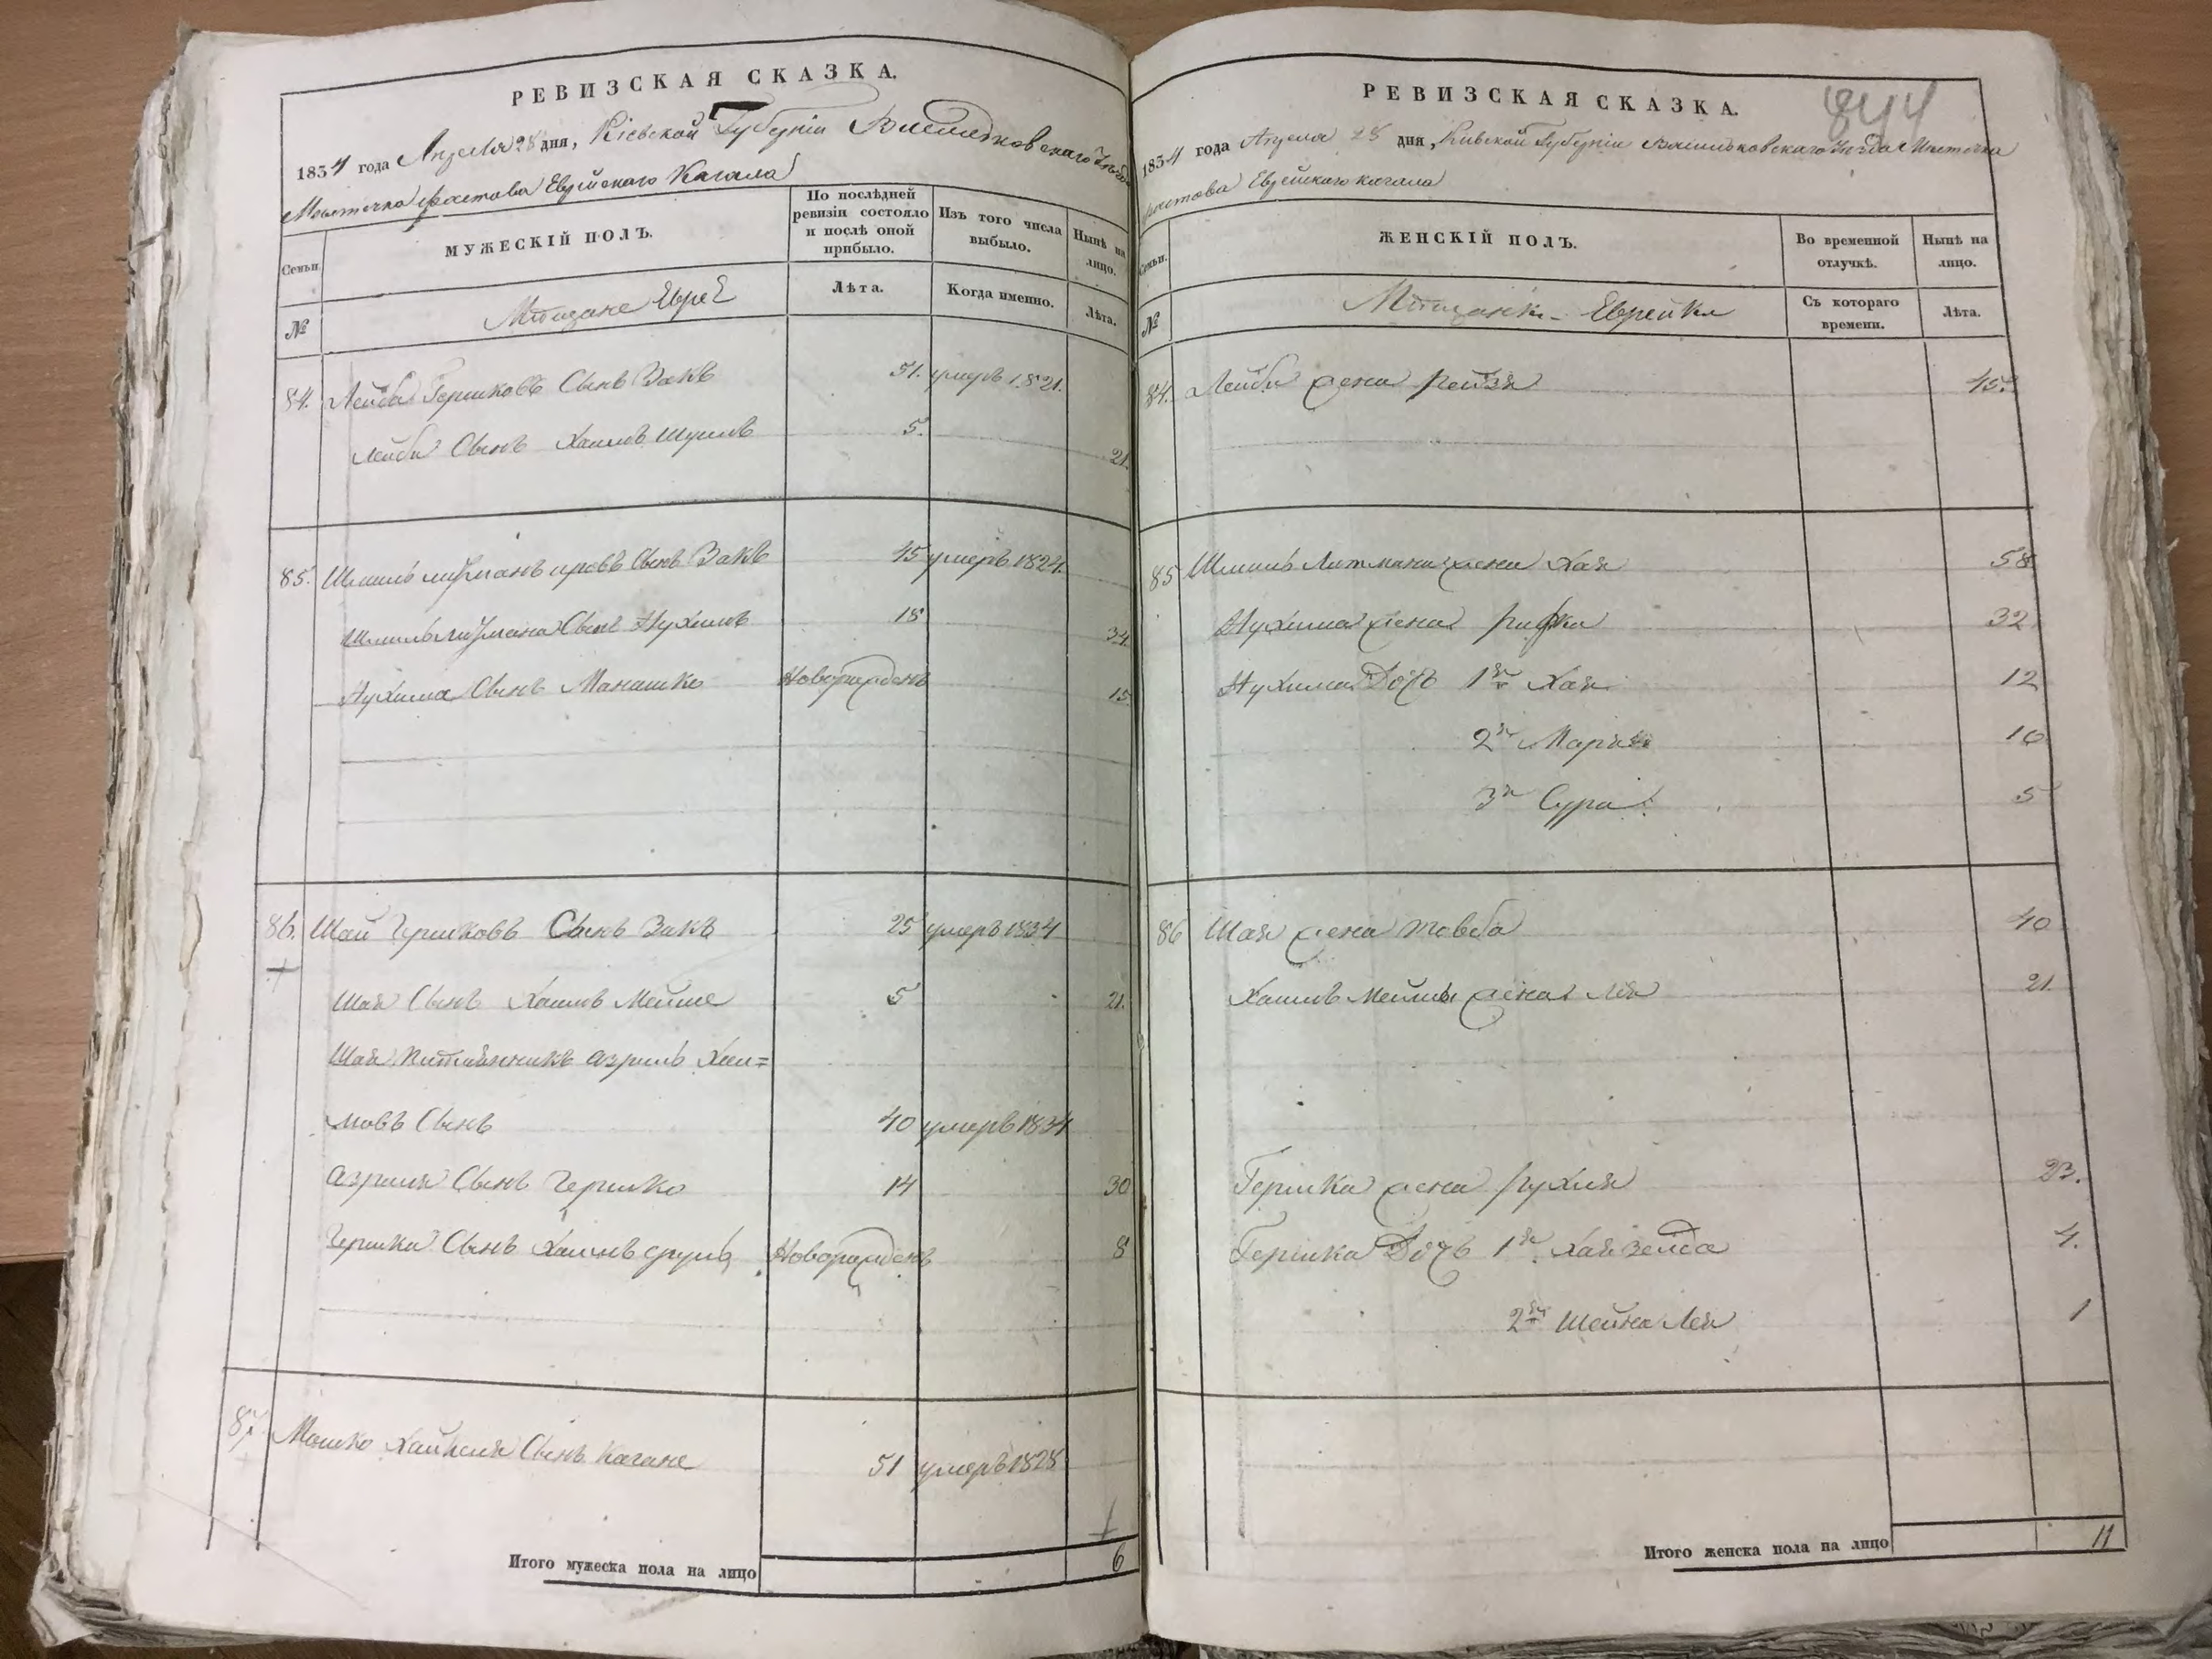 РЕВИЗСКАЯ СКАЗКА.
1834 года Апреля 28 дня, Кіевской Губерніи Васильковскаго Уѣзда
Мѣстечка Фастова Еврейскаго Кагала
Семьи.
МУЖЕСКІЙ ПОЛЪ.
По послѣдней ревизіи состояло и послѣ оной прибыло.
Изъ того числа выбыло.
Нынѣ на лицо.
№
Мѣщане Евреи
Лѣта.
Когда именно.
Лѣта.
84. Лейба Гершковъ Сынъ Закъ 51. умеръ 1821.
Лейбы Сынъ Хаимъ Шулимъ 5. 21.
85. Шмуль Литманъ Сынъ Закъ 45 умеръ 1824.
Шмуль Литмана Сынъ Нухимъ 18 34.
Нухима Сынъ Манашко Новорожденъ 15
86. Шая Гершковъ Сынъ Закъ 25 умеръ 1834
Шая Сынъ Хаимъ Мейше 5 21.
Шая Питаѣнникъ Азриль Хаи=
мовъ Сынъ 40 умеръ 1834
Азриля Сынъ Гершко 14 30
Гершка Сынъ Хаимъ Сруль Новорожденъ 8
87. Мошко Сынъ Кагане 51 умеръ 1828
Итого мужеска пола на лицо 6
РЕВИЗСКАЯ СКАЗКА.
844
1834 года Апреля 28 дня, Кіевской Губерніи Васильковскаго Уѣзда Мѣстечка
Фастова Еврейскаго Кагала
Семьи.
ЖЕНСКІЙ ПОЛЪ.
Во временной отлучкѣ.
Нынѣ на лицо.
№
Мѣщанки Еврейки
Съ котораго времени.
Лѣта.
84. Лейбы жена Рейзя 45.
85 Шмуль Литмана жена Хая 58
Нухима жена Рифка 32
Нухима Дочь 1я Хая 12
2я Марьям 10
3я Сура 5
86 Шая жена Товба 40
Хаимъ Мейши жена Лея 21.
Гершка жена Рухля 23.
Гершка Дочь 1я Хая Зелда 4.
2я Шейна Лея 1
Итого женска пола на лицо 11